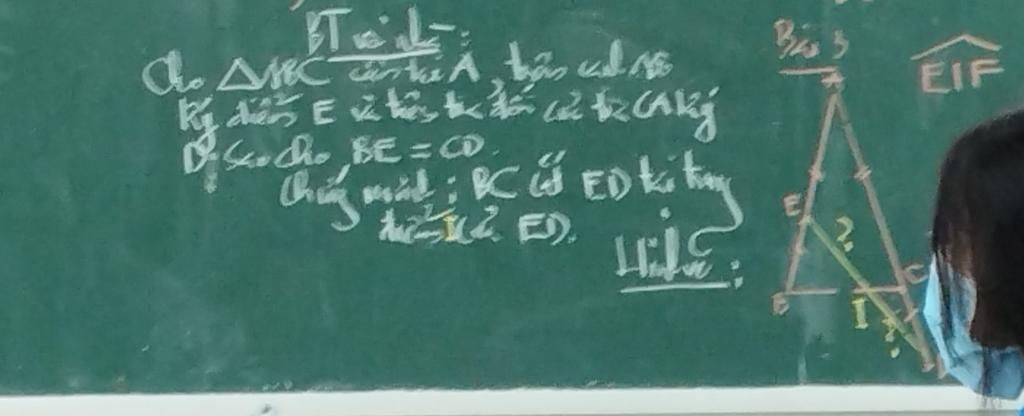 BT về nhà:
Cho ΔABC cân tại A, trên cạnh AB
lấy điểm E và trên tia đối của tia CA lấy
D sao cho BE = CD.
Chứng minh: BC cắt ED tại trung
điểm I của ED.
Hình vẽ:
Bài 3
A
EIF
E
?
B
I
C
?